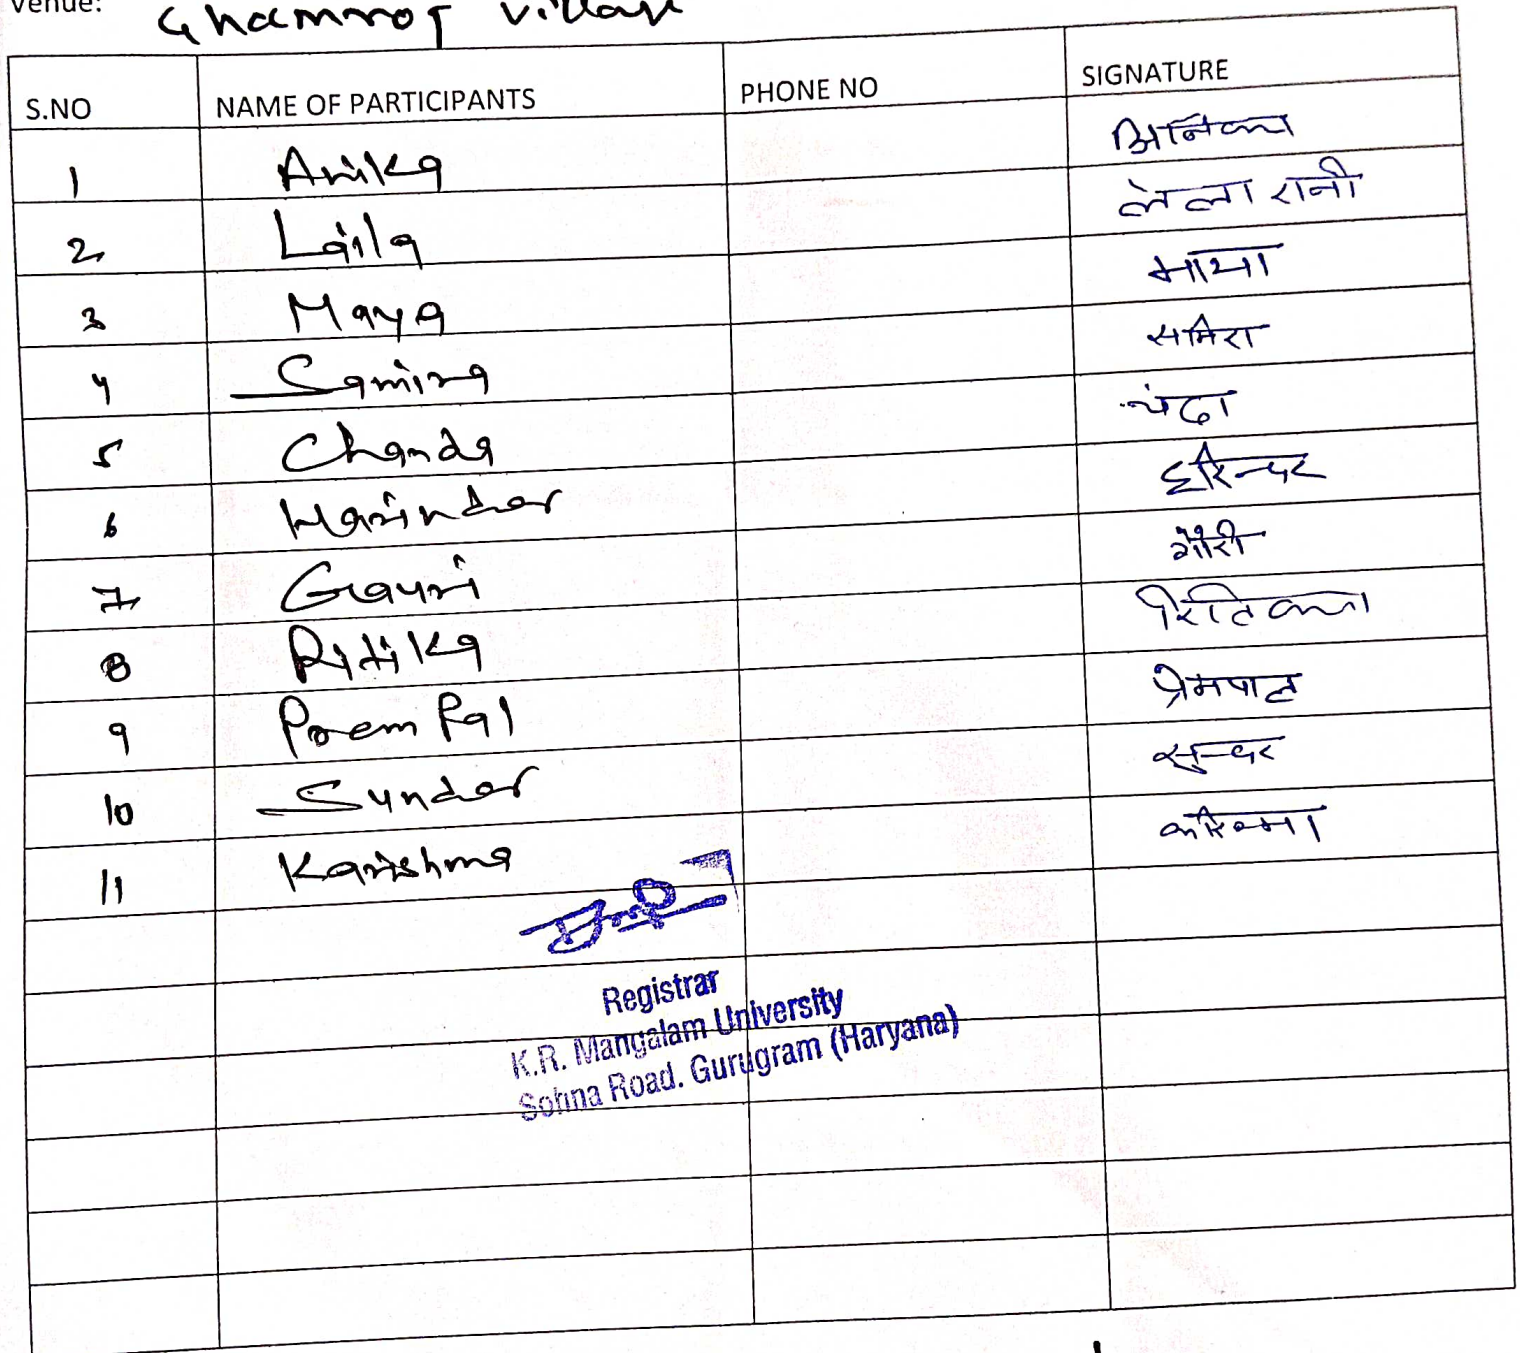 Venue: Ghamroj Village
S.NO NAME OF PARTICIPANTS PHONE NO SIGNATURE
1 Anika अनिका
2 Laila लेला रानी
3 Maya माया
4 Samira समिरा
5 Chanda चंदा
6 Harinder हरिन्दर
7 Gauri गौरी
8 Ritika रितिका
9 Prem Pal प्रेमपाल
10 Sunder सुन्दर
11 Karishma करिश्मा
Registrar
K.R. Mangalam University
Sohna Road. Gurugram (Haryana)